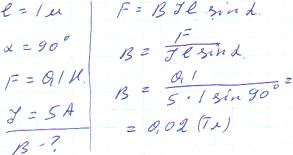 ℓ = 1 м
α = 90°
F = 0,1 Н.
J = 5 А
B - ?
F = B J ℓ sin α.
B = F / J ℓ sin α.
B = 0,1 / 5 · 1 sin 90° =
= 0,02 (Тл)